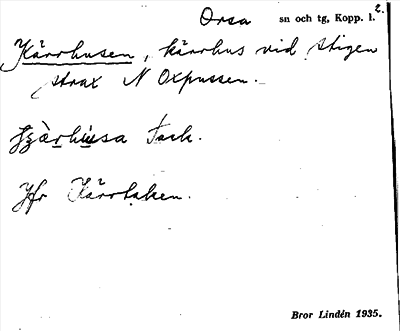 Orsa sn och tg, Kopp. l.
Kärrhusen, kärrhus vid stigen
strax N Oxpussen.
Tack.
Jfr Kärrtaken.
Bror Lindén 1935.